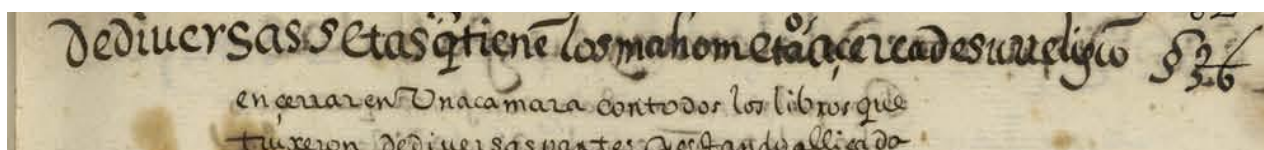 De diuersas setas q̄ tienē los mahometāos açerca de su rreligiō § 26
ençerrar en Una camara con todos los libros que
truxeron de diuersas partes y estando alli cada